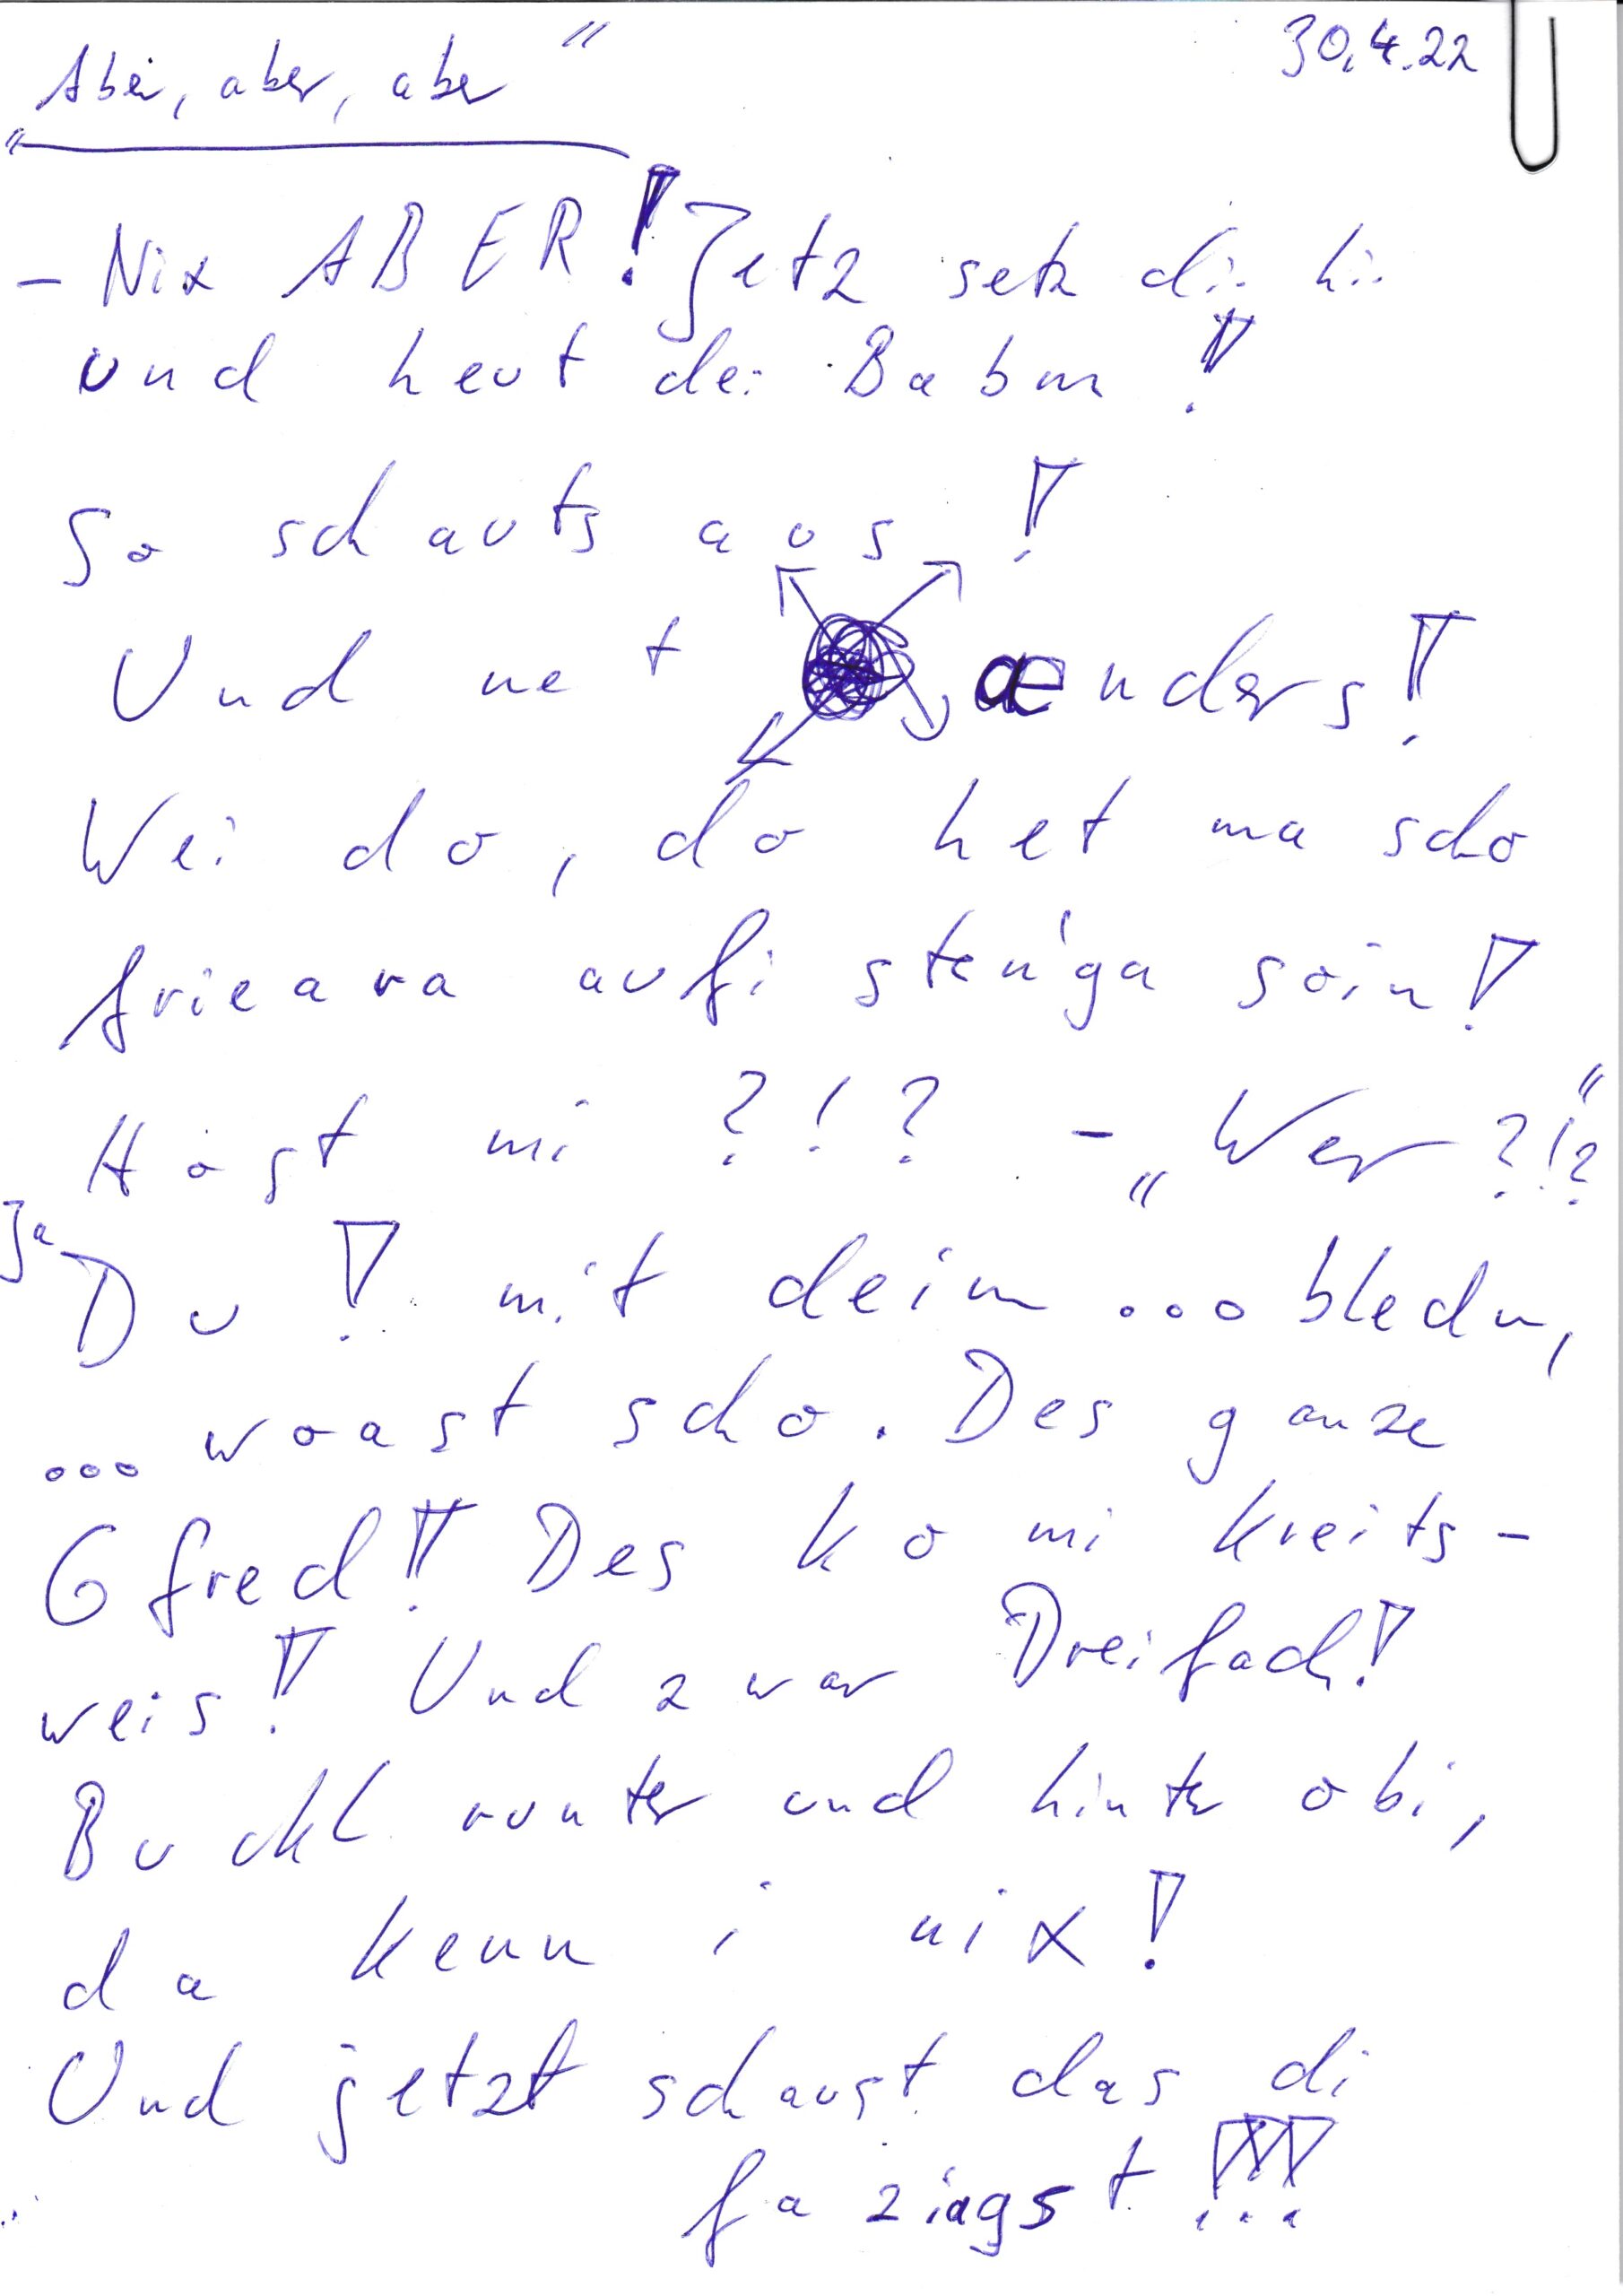 30.4.22
„Aber, aber, aber"
- Nix ABER! Jetz setz di hi
und heut dei Babm!
So schauts aus!
Und net anders!
Wei do, do het ma scho
frieara aufi stei'ga soin!
Host mi ?!? - „Wer ?!?"
Ja Du! mit deim ... bledn,
... woast scho. Des ganze
Gfred! Des ko mi kreits-
weis! Und zwar Dreifach!
Buckl runter und hint obi,
da kenn i nix!
Und jetzt schaust das di
faziagst!!!